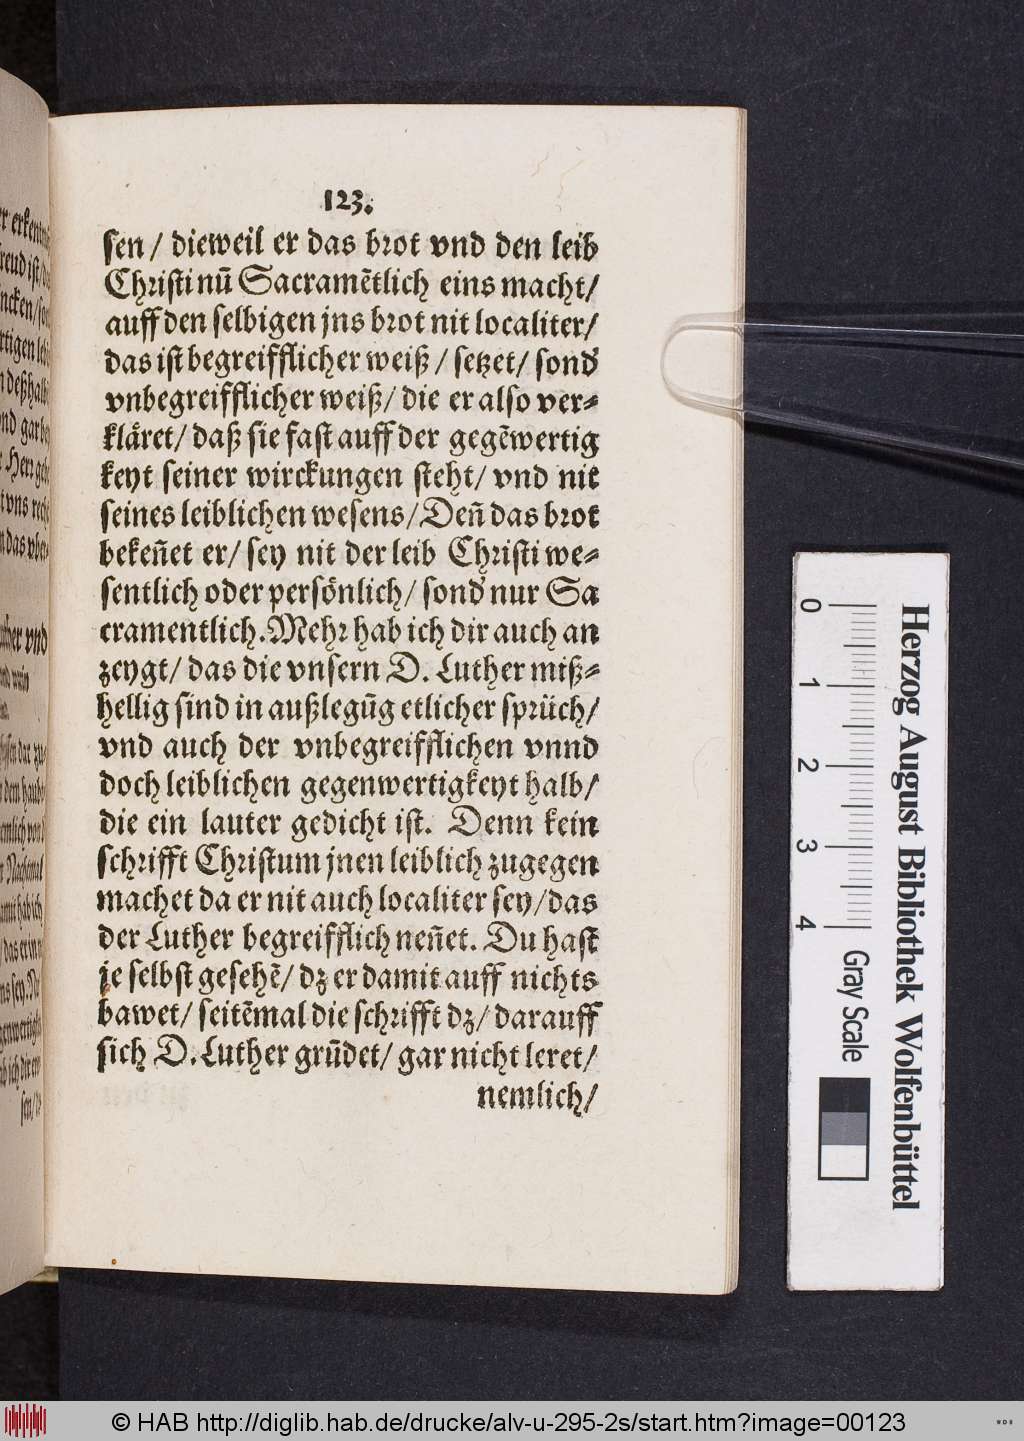 123.
sen/ dieweil er das brot vnd den leib
Christi nū Sacramētlich eins macht/
auff den selbigen jns brot nit localiter/
das ist begreifflicher weiß/ setzet/ sond'
vnbegreifflicher weiß/ die er also ver=
kläret/ daß sie fast auff der gegēwertig
keyt seiner wirckungen steht/ vnd nit
seines leiblichen wesens/ Deñ das brot
bekeñet er/ sey nit der leib Christi we=
sentlich oder persönlich/ sond' nur Sa
cramentlich. Mehr hab ich dir auch an
zeygt/ das die vnsern D. Luther miß=
hellig sind in außlegūg etlicher sprüch/
vnd auch der vnbegreifflichen vnnd
doch leiblichen gegenwertigkeyt halb/
die ein lauter gedicht ist. Denn kein
schrifft Christum jnen leiblich zugegen
machet da er nit auch localiter sey/ das
der Luther begreifflich neñet. Du hast
je selbst gesehē/ dz er damit auff nichts
bawet/ seitēmal die schrifft dz/ darauff
sich D. Luther grūdet/ gar nicht leret/
nemlich/
Herzog August Bibliothek Wolfenbüttel
0 1 2 3 4 Gray Scale
© HAB http://diglib.hab.de/drucke/alv-u-295-2s/start.htm?image=00123